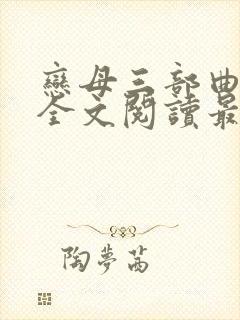 戀母三部曲
全文閱讀最
陶夢茜